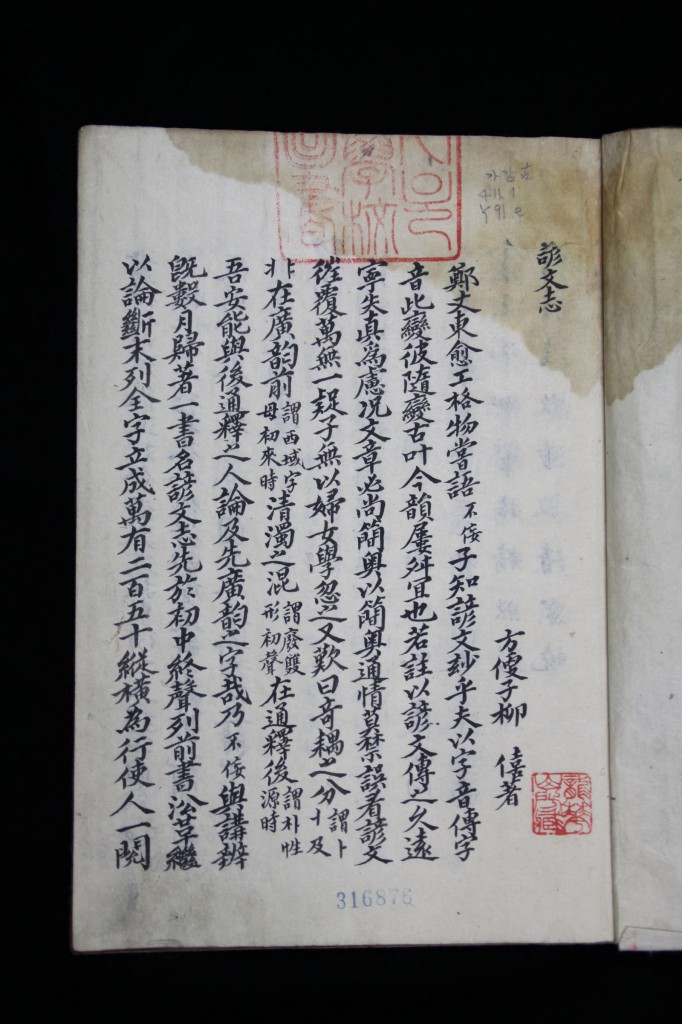 가람古
411.1
316876
諺文志
方便子柳 僖著
鄭丈東愈工格物嘗語不佞子知諺文玅乎夫以字音傳字
音此變彼隨變古叶今韻屢舛宜也若註以諺文傳之久遠
寧失真為慮况文章必尚簡奥以簡奥通情莫禁誤看諺文
徃覆萬無一疑子無以婦女學忽之又歎曰奇耦之分謂ㅏㅓ及
ㅑㅕ在廣韵前謂西域字母初來時清濁之混謂廢雙形初聲在通釋後謂朴性源時
吾安能與後通釋之人論及先廣韵之字哉乃不佞與講辨
旣數月歸著一書名諺文志先於初中終聲列前書沿革繼
以論斷末列全字立成萬有二百五十縱橫為行使人一閱